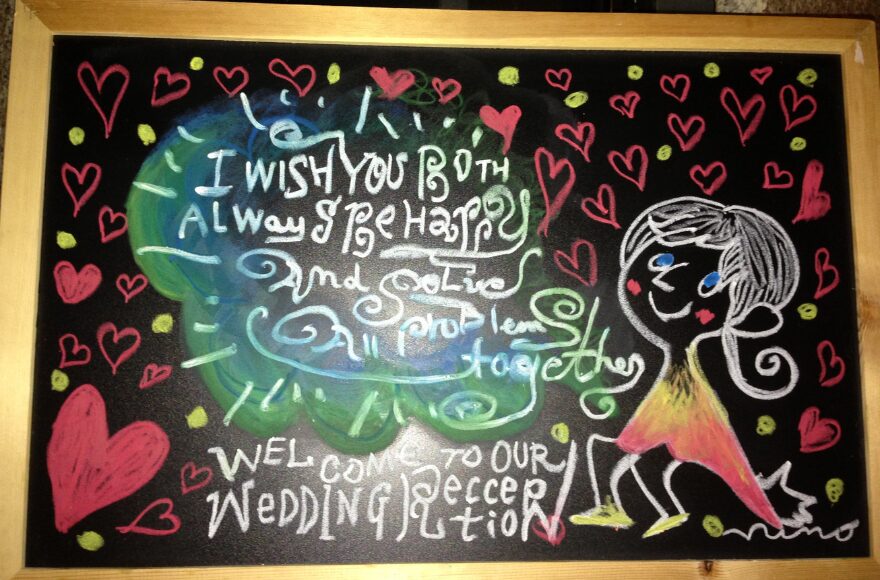 I WISH YOU BOTH
ALWayS Be HaPPy
And SoLve
All problemS
together
WELCOME TO OUR
WeDDING Reccep
tion
nino